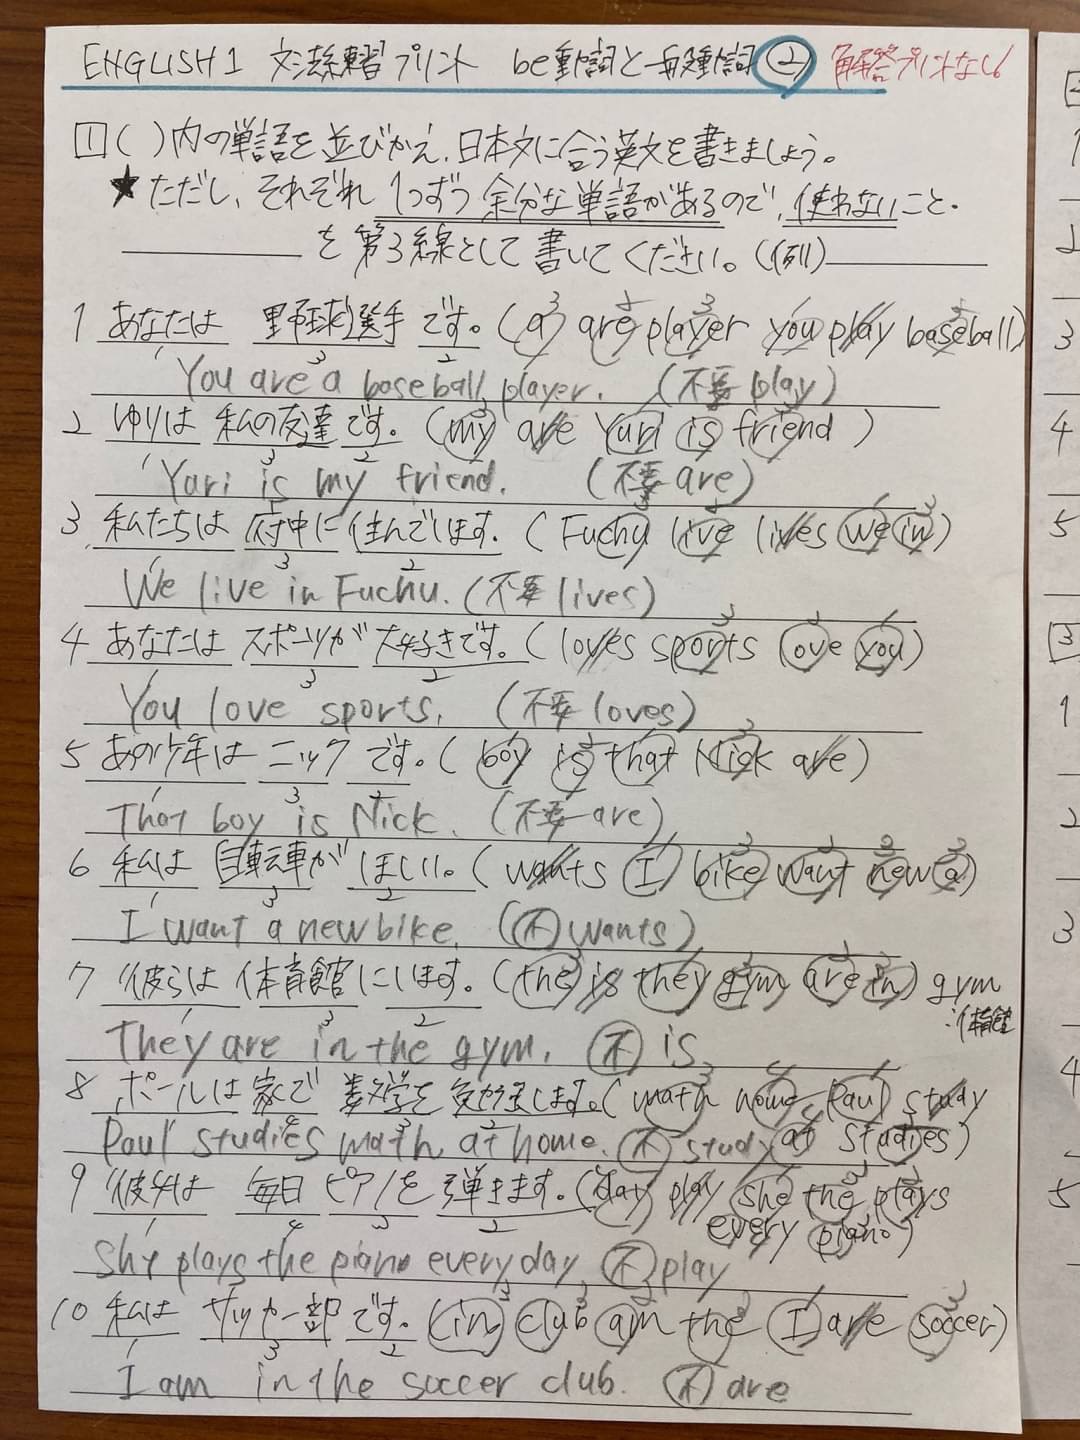 ENGLISH1 文法練習プリント be動詞と一般動詞② 解答プリントなし
1 ( )内の単語を並びかえ、日本文に合う英文を書きましょう。
★ただし、それぞれ1つずつ余分な単語があるので、使わないこと。
を第3線として書いてください。(例)
1 あなたは 野球選手です。(a are player you play baseball)
You are a baseball player. (不要 play)
2 ゆりは 私の友達です。(my are Yuri is friend)
Yuri is my friend. (不要 are)
3 私たちは 府中に 住んでいます。(Fuchu live lives we in)
We live in Fuchu. (不要 lives)
4 あなたは スポーツが 大好きです。(loves sports love you)
You love sports. (不要 loves)
5 あの少年は ニック です。(boy is that Nick are)
That boy is Nick. (不要 are)
6 私は 自転車が ほしい。(wants I bike want new a)
I want a new bike. (不 wants)
7 彼らは 体育館にいます。(the is they gym are in) gym
:体育館
They are in the gym. 不 is
8 ポールは 家で 数学を 勉強します。(math home Paul study
at studies)
Paul studies math at home. 不 study
9 彼女は 毎日 ピアノを 弾きます。(day play she the plays
every piano)
She plays the piano every day. 不 play
10 私は サッカー部 です。(in club am the I are soccer)
I am in the soccer club. 不 are
2
1
2
3
4
5
3
1
2
3
4
5